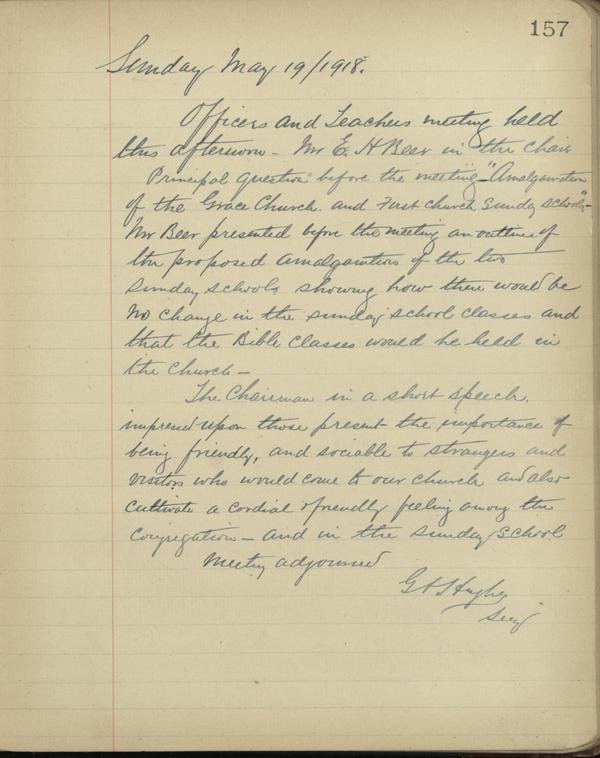 157
Sunday May 19/1918.
Officers and Teachers meeting held
this afternoon - Mr E. H Beer in the Chair
Principal question before the meeting - "Amalgamation
of the Grace Church. and First church Sunday schools" -
Mr Beer presented before the meeting an outline of
the proposed amalgamation of the two
Sunday schools showing how there would be
no change in the sunday school classes and
that the Bible Classes would be held in
the church -
The Chairman in a short speech.
impressed upon those present the importance of
being friendly, and sociable to strangers and
visitors who would come to our church and also
cultivate a cordial & friendly feeling among the
congregation - and in the Sunday School
Meeting adjourned
Hughes
Secy